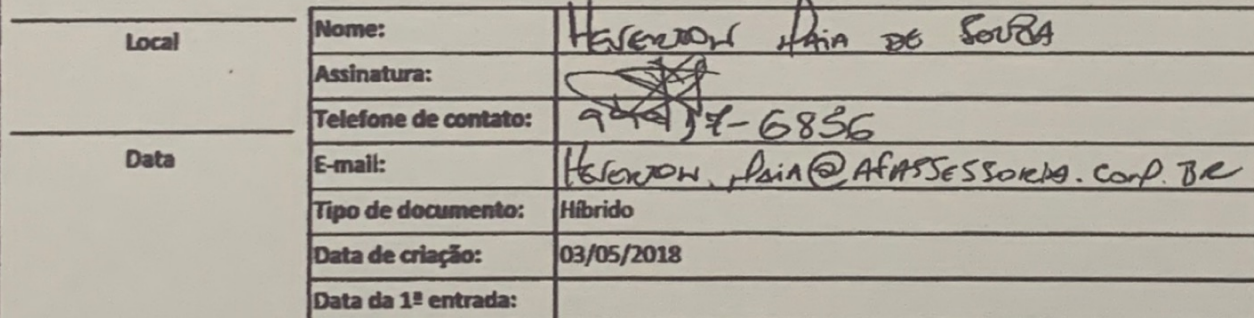 Local
Data
Nome: Heverton Paia de Souza
Assinatura:
Telefone de contato: 7-6856
E-mail: @afassessoria.com.br
Tipo de documento: Híbrido
Data de criação: 03/05/2018
Data da 1ª entrada: